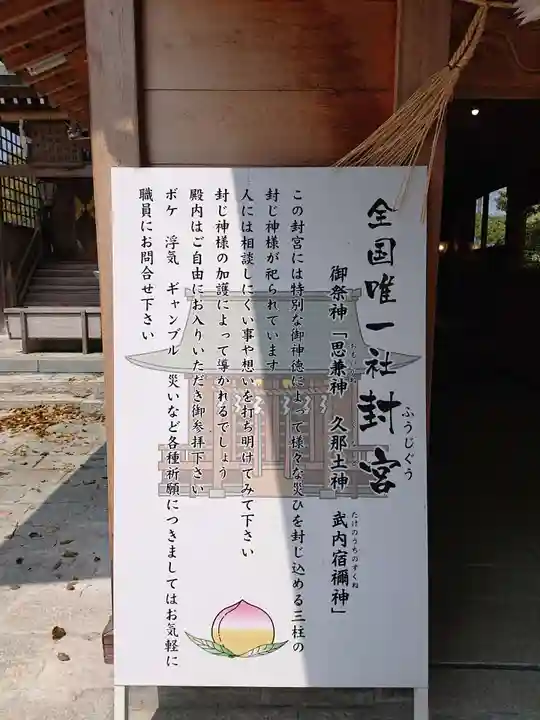 全国唯一社封宮
ふうじぐう
御祭神「思兼神 久那土神 武内宿禰神」
たけのうちのすくね
この封宮には特別な御神徳によって様々な災ひを封じ込める三柱の
封じ神様が祀られています
人には相談しにくい事や想いを打ち明けてみて下さい
封じ神様の加護によって導かれるでしょう
殿内はご自由にお入りいただき御参拝下さい
ボケ 浮気 ギャンブル 災いなど各種祈願につきましてはお気軽に
職員にお問合せ下さい